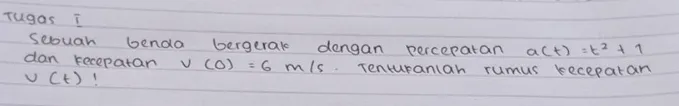 Tugas I
Sebuah benda bergerak dengan percepatan a(t) = t² + 1
dan kecepatan v (0) = 6 m/s. Tentukanlah rumus kecepatan
v (t)!